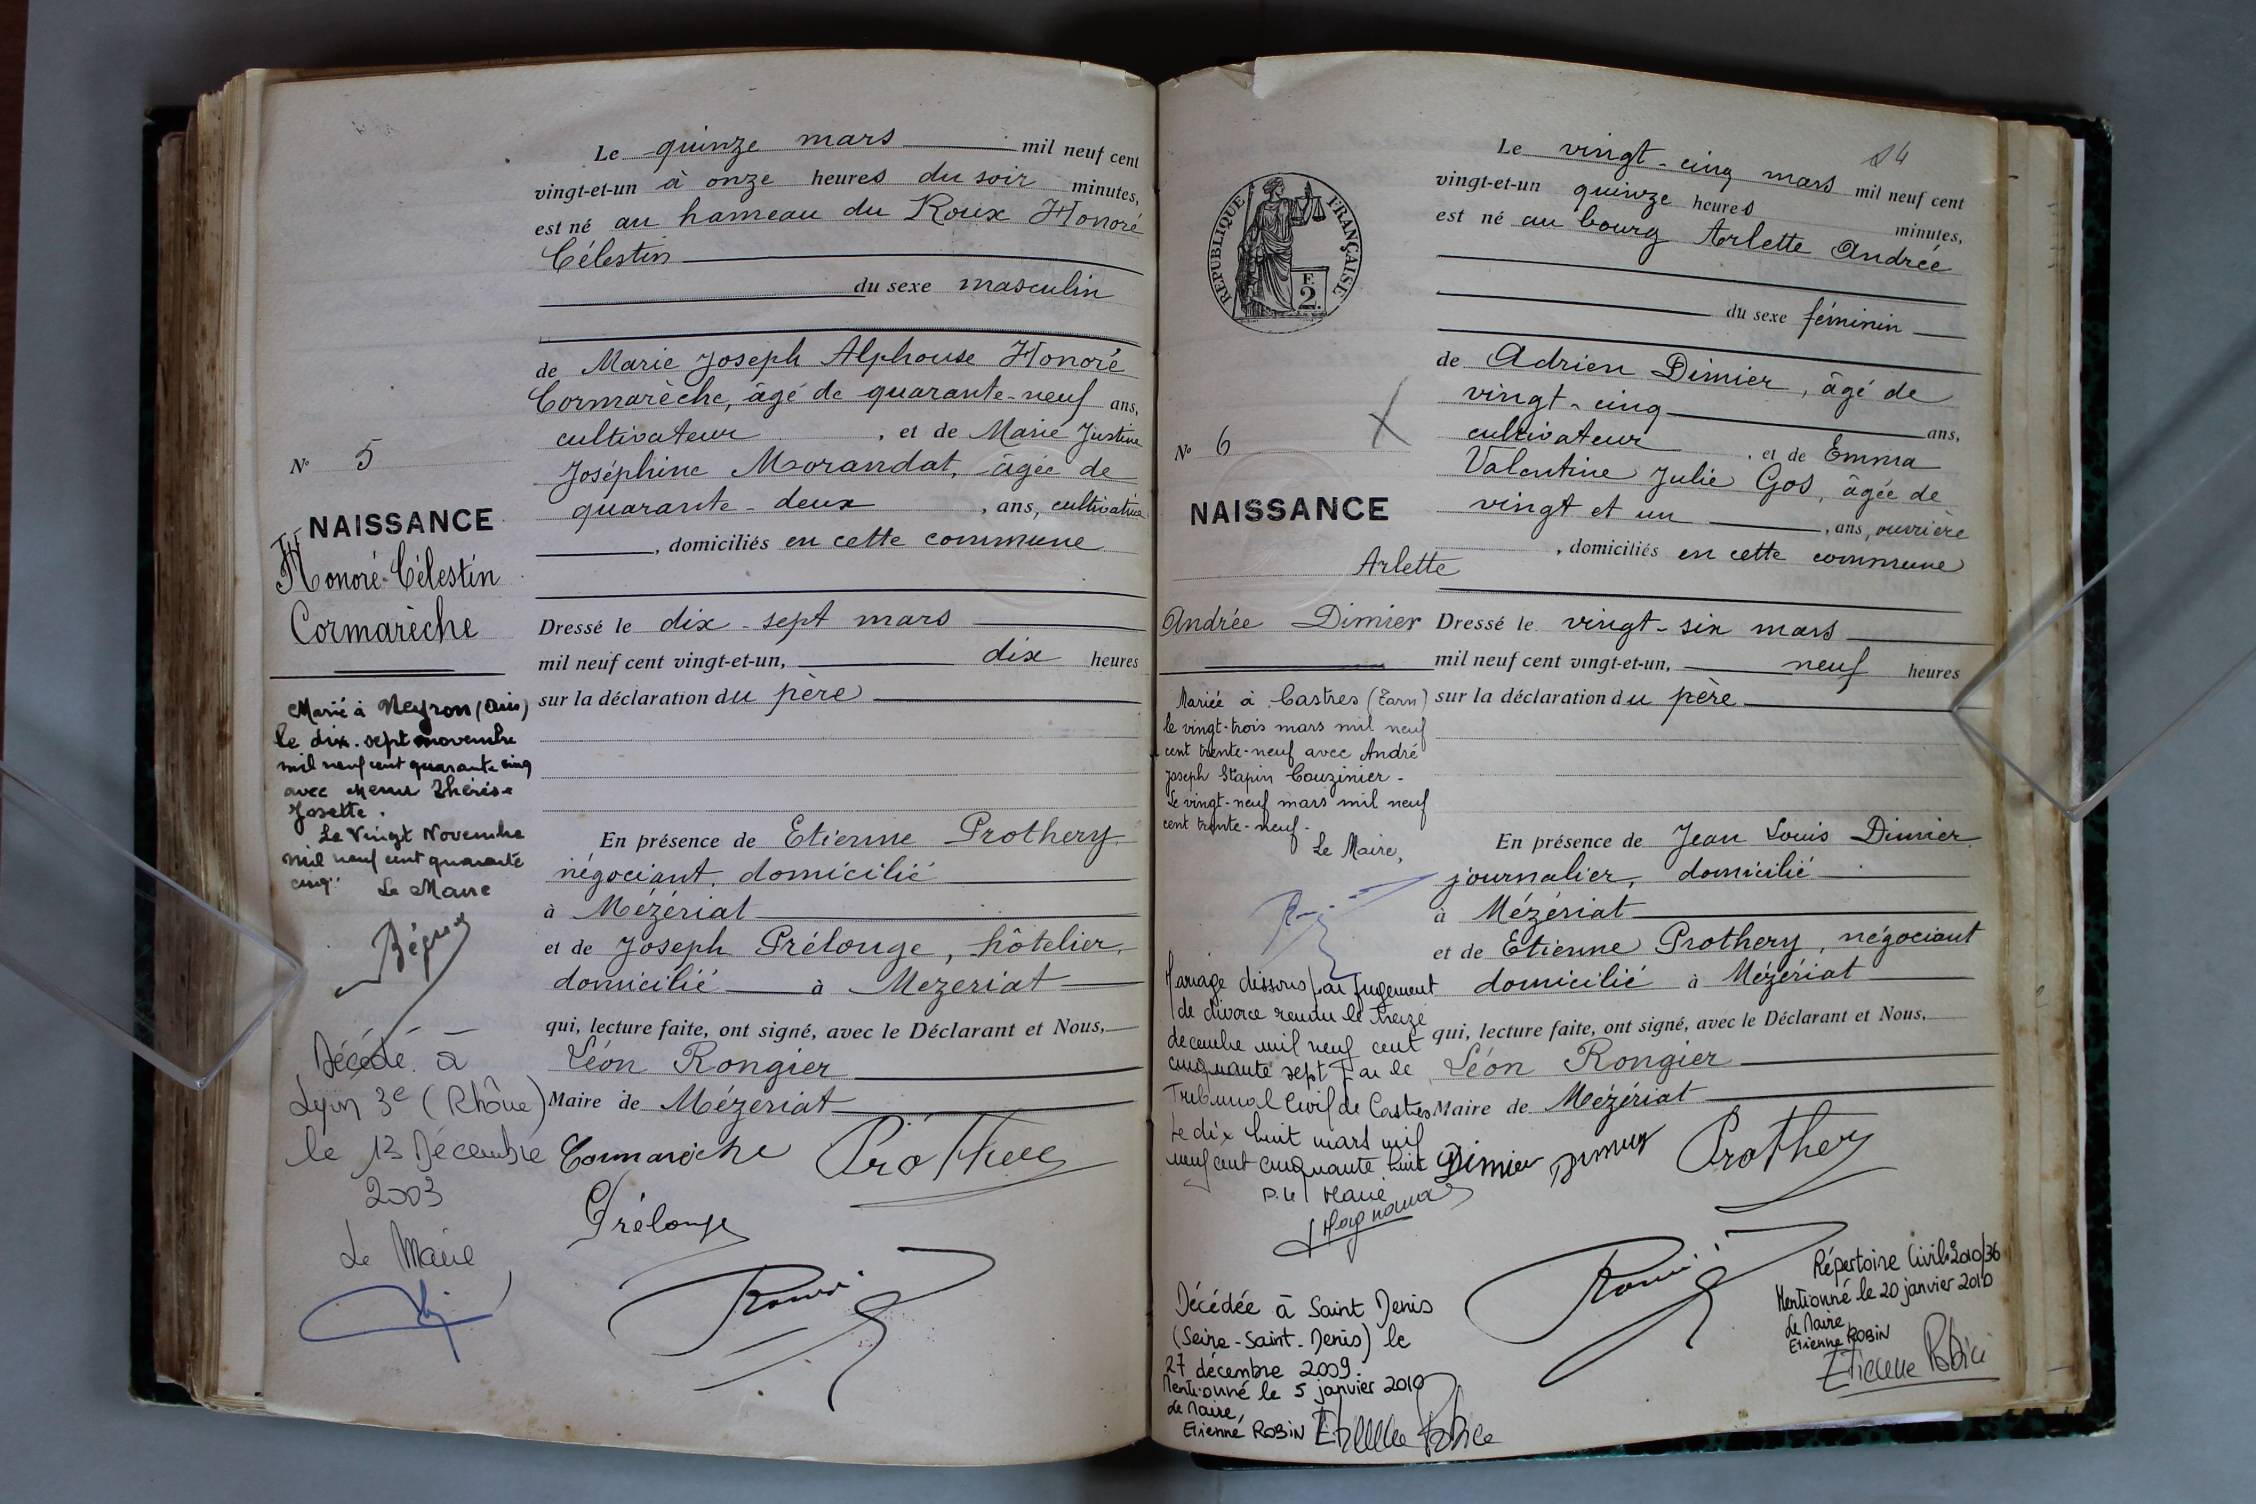 Le quinze mars mil neuf cent
vingt-et-un à onze heures du soir minutes,
est né au hameau du Roux Honoré
Célestin
du sexe masculin
de Marie Joseph Alphonse Honoré
Cormarèche, âgé de quarante-neuf ans,
cultivateur, et de Marie Justine
Joséphine Morandat, âgée de
quarante-deux, ans, cultivatrice
, domiciliés en cette commune
Dressé le dix-sept mars
mil neuf cent vingt-et-un, dix heures
sur la déclaration du père
En présence de Etienne Prothery
négociant, domicilié
à Mézériat
et de Joseph Prélonge, hôtelier,
domicilié à Mezeriat
qui, lecture faite, ont signé, avec le Déclarant et Nous,
Léon Rongier
Maire de Mézériat
Cormarèche Prothery
Prélonge
N° 5
NAISSANCE
Honoré-Célestin
Cormarèche
Marié à Neyron (Ain)
le dix-sept novembre
mil neuf cent quarante cinq
avec Thérèse
Josette.
Le Vingt Novembre
mil neuf cent quarante
cinq. Le Maire
Décédé à
Lyon 3e (Rhône)
le 13 Décembre
2003
Le Maire
14
RÉPUBLIQUE FRANÇAISE
F.
2.
Le vingt-cinq mars mil neuf cent
vingt-et-un quinze heures minutes,
est né au bourg Arlette Andrée
du sexe féminin
de Adrien Dimier, âgé de
vingt-cinq ans,
cultivateur, et de Emma
Valentine Julie Gos, âgée de
vingt et un, ans, ouvrière
, domiciliés en cette commune
Dressé le vingt-six mars
mil neuf cent vingt-et-un, neuf heures
sur la déclaration du père
En présence de Jean Louis Dimier
journalier, domicilié
à Mézériat
et de Etienne Prothery, négociant
domicilié à Mézériat
qui, lecture faite, ont signé, avec le Déclarant et Nous,
Léon Rongier
Maire de Mézériat
Dimier Dimier Prothery
N° 6
NAISSANCE
Arlette
Andrée Dimier
Mariée à Castres (Tarn)
le vingt-trois mars mil neuf
cent trente-neuf avec André
Joseph Stapin Couzinier-
Le vingt-neuf mars mil neuf
cent trente-neuf-
Le Maire,
Mariage dissous par jugement
de divorce rendu le treize
décembre mil neuf cent
cinquante sept par le
Tribunal Civil de Castres
Le dix huit mars mil
neuf cent cinquante huit
P. le Maire
Décédée à Saint Denis
(Seine-Saint-Denis) le
27 décembre 2009.
Mentionné le 5 janvier 2010
Le Maire,
Etienne ROBIN Etienne Robin
Répertoire Civil: 2010/36
Mentionné le 20 janvier 2010
Le Maire,
Etienne ROBIN
Etienne Robin